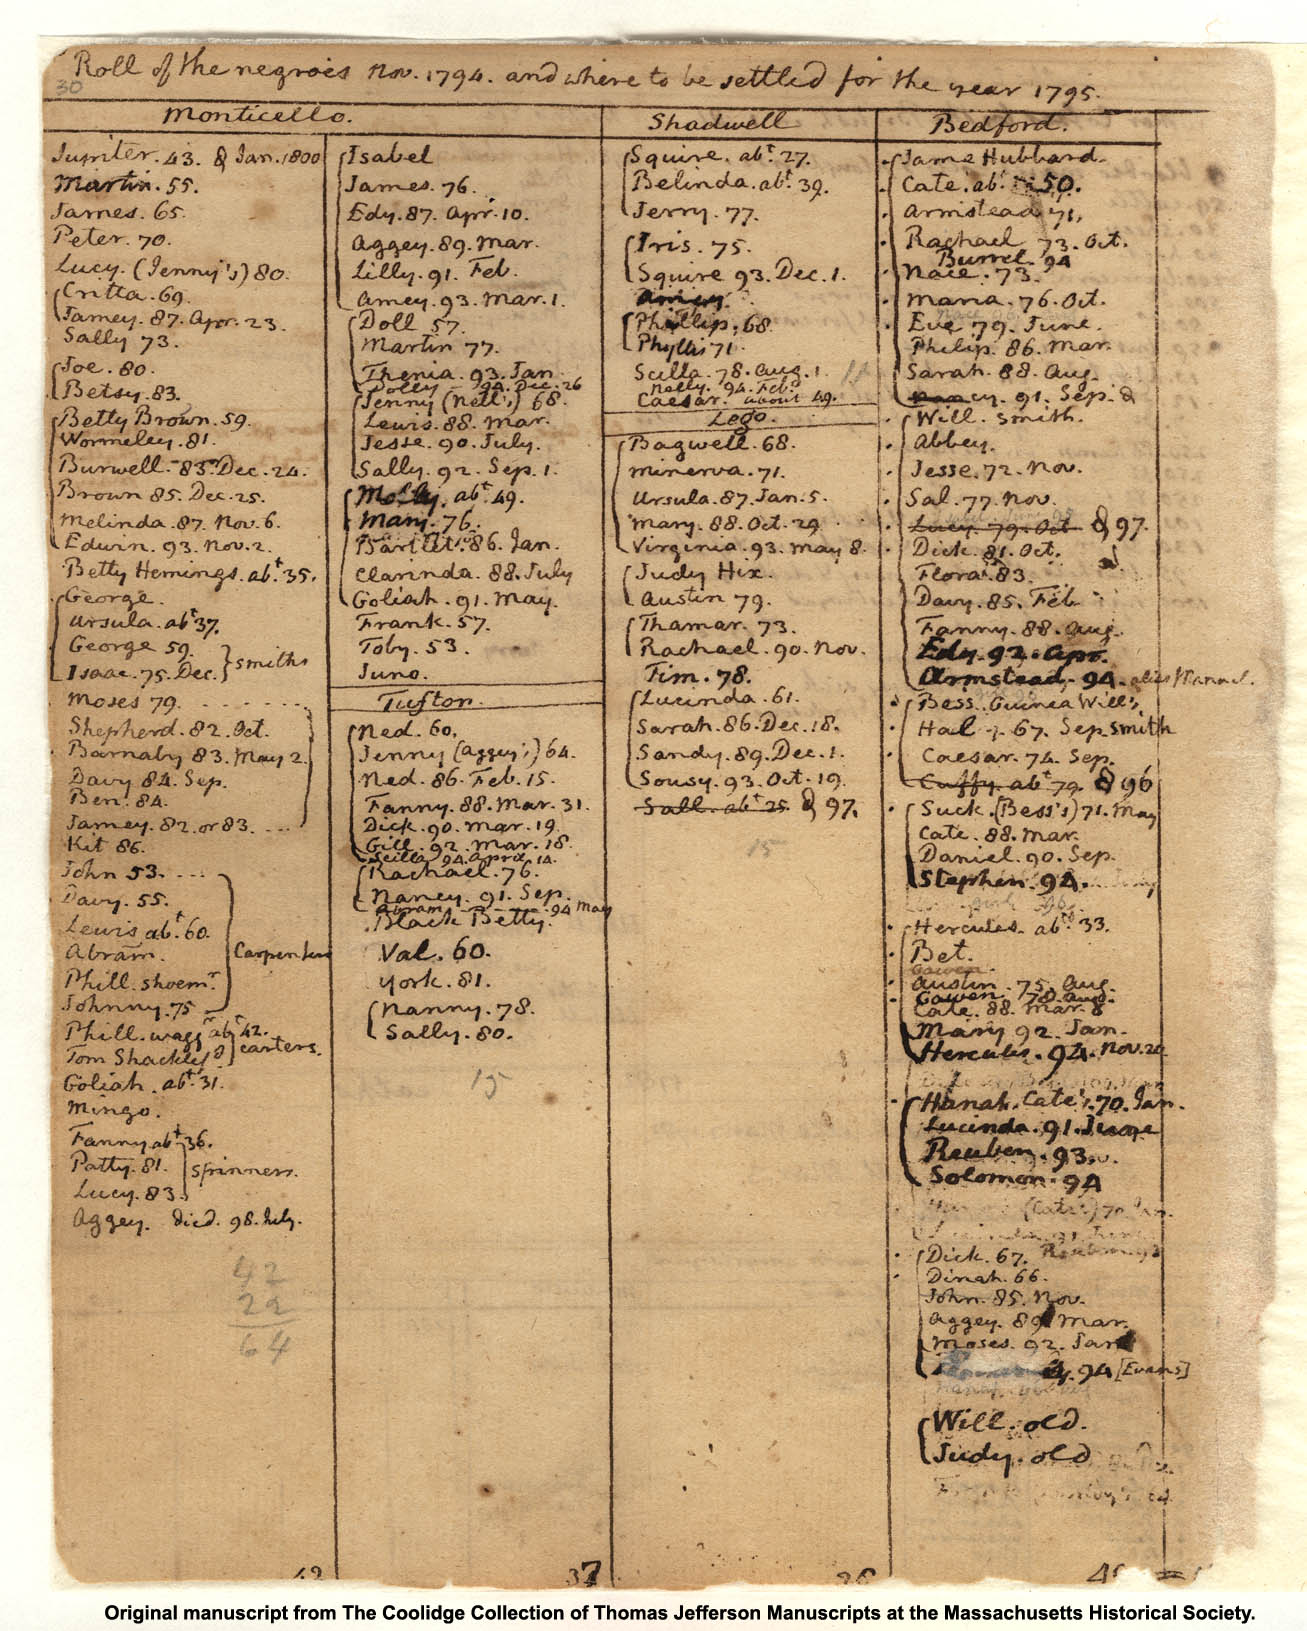 Roll of the negroes Nov. 1794. and where to be settled for the year 1795.
30
Monticello.
Jupiter. 43. d Jan. 1800
Martin. 55.
James. 65.
Peter. 70.
Lucy. (Jenny's) 80.
Critta. 69.
Jamey. 87. Apr. 23.
Sally 73.
Joe. 80.
Betsy. 83.
Betty Brown. 59.
Wormeley. 81.
Burwell. 83. Dec. 24.
Brown 85. Dec. 25.
Melinda. 87. Nov. 6.
Edwin. 93. Nov. 2.
Betty Hemings. abt. 35.
George.
Ursula. abt 37.
George 59.
Isaac. 75. Dec. } smiths
Moses 79.
Shepherd. 82. Oct.
Barnaby 83. May 2.
Davy 84. Sep.
Ben. 84.
Jamey. 82. or 83.
Kit 86.
John 53.
Davy. 55.
Lewis abt. 60.
Abram.
Phill. shoemr.
Johnny. 75
Carpenters
Phill. waggr abt 42.
Tom Shackleford
carters.
Goliah. abt. 31.
Mingo.
Fanny. abt 36.
Patty. 81.
Lucy. 83.
spinners.
Aggey. died. 98. July.
42
22
64
Isabel
James. 76.
Edy. 87. Apr. 10.
Aggey. 89. Mar.
Lilly. 91. Feb.
Amey. 93. Mar. 1.
Doll 57.
Martin 77.
Thenia. 93. Jan
Dolly 94. Dec. 26
Jenny (Nell's) 68.
Lewis. 88. Mar.
Jesse. 90. July.
Sally. 92. Sep. 1.
Molly. abt. 49.
Mary. 76.
Bartlet. 86. Jan.
Clarinda. 88. July
Goliah. 91. May.
Frank. 57.
Toby. 53.
Juno.
Tufton.
Ned. 60.
Jenny (Aggey's) 64.
Ned. 86. Feb. 15.
Fanny. 88. Mar. 31.
Dick. 90. Mar. 19.
Gill. 92. Mar. 18.
Scilla 94. April. 14.
Rachael. 76.
Nancy. 91. Sep.
Abram 94 May
Black Betty.
Val. 60.
York. 81.
Nanny. 78.
Sally. 80.
15
37
Shadwell
Squire. abt. 27.
Belinda. abt. 39.
Jerry. 77.
Iris. 75.
Squire 93. Dec. 1.
Amey
Phillip. 68.
Phyllis 71
Scilla. 78. Aug. 1.
Nelly. 94. Feb.
Caesar. about 49.
Lego.
Bagwell. 68.
Minerva. 71.
Ursula. 87. Jan. 5.
Mary. 88. Oct. 29
Virginia. 93. May 8.
Judy Hix.
Austin 79.
Thamar. 73.
Rachael. 90. Nov.
Tim. 78.
Lucinda. 61.
Sarah. 86. Dec. 18.
Sandy. 89. Dec. 1.
Sousy. 93. Oct. 19.
Sall. abt 25 d 97.
15
Bedford.
Jame Hubbard.
Cate. abt. 50.
Armstead 71.
Rachael 73. Oct.
Burrel. 94
Nace. 73.
Maria. 76. Oct.
Eve 79. June.
Philip. 86. Mar.
Sarah. 88. Aug.
Nancy. 91. Sep. d
Will. smith.
Abbey.
Jesse. 72. Nov.
Sal. 77. Nov.
Lucy. 79. Oct d 97.
Dick. 81. Oct.
Flora. 83. d
Davy. 85. Feb
Fanny. 88. Aug.
Edy. 92. Apr.
Armstead. 94. alias Mannel.
Bess. Guinea Will's
Hal. 67. Sep. smith
Caesar. 74. Sep.
Cuffy. abt 79 d 96
Suck. (Bess's) 71. May
Cate. 88. Mar.
Daniel. 90. Sep.
Stephen. 94.
Hercules. abt. 33.
Bet.
Gawen.
Austin. 75. Aug.
Gawen. 78. Aug.
Cate. 88. Mar. 8
Mary 92. Jan.
Hercules. 94. Nov. 20
Hanah. Cate's. 70. Jan.
Lucinda. 91. June
Reuben. 93.
Solomon. 94
(Cate's) 70 Jan.
Dick. 67. Reuben. 93
Dinah. 66.
John. 85. Nov.
Aggey. 89 Mar.
Moses. 92. Jan
94 [Evans]
Will. old.
Judy. old
Original manuscript from The Coolidge Collection of Thomas Jefferson Manuscripts at the Massachusetts Historical Society.